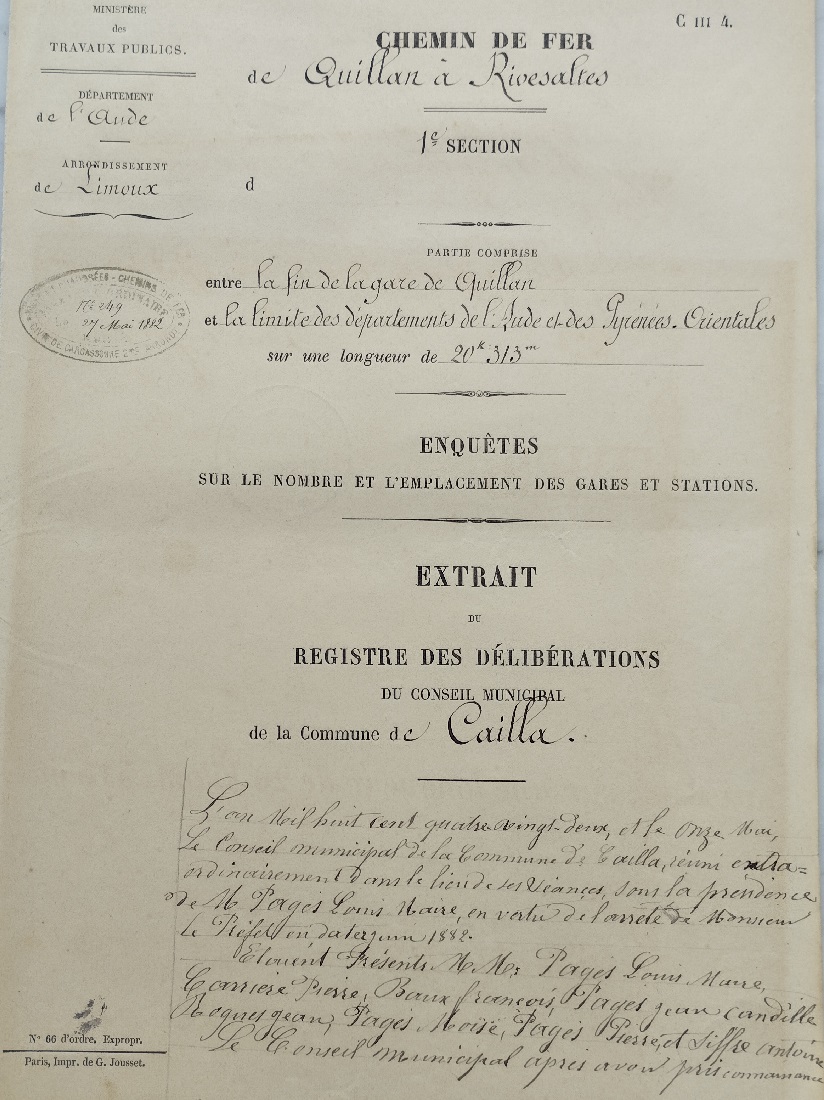 MINISTÈRE
des
TRAVAUX PUBLICS.
DÉPARTEMENT
de l'Aude
ARRONDISSEMENT
de Limoux
C III 4.
CHEMIN DE FER
de Quillan à Rivesaltes
1e SECTION
d
PARTIE COMPRISE
entre la fin de la gare de Quillan
et la limite des départements de l'Aude et des Pyrénées-Orientales
sur une longueur de 20k 313m
CHEMINS DE FER
N° 249
27 Mai 1882
ENQUÊTES
SUR LE NOMBRE ET L'EMPLACEMENT DES GARES ET STATIONS.
EXTRAIT
DU
REGISTRE DES DÉLIBÉRATIONS
DU CONSEIL MUNICIPAL
de la Commune de Cailla.
L'an Mil huit cent quatre vingt-deux, et le onze Mai,
Le Conseil municipal de la Commune de Cailla, réuni extra=
ordinairement dans le lieu de ses séances, sous la présidence
de M. Pagés Louis Maire, en vertu de l'arrêté de Monsieur
le Préfet en date juin 1882.
Etaient Présents M.M. Pagés Louis Maire,
Carriere Pierre, Baux françois, Pages jean Candille
Rogues jean, Pagés Moïse, Pagés Pierre, et Siffre antoine
Le Conseil municipal apres avoir pris connaissance
N° 66 d'ordre. Expropr.
Paris, Impr. de G. Jousset.